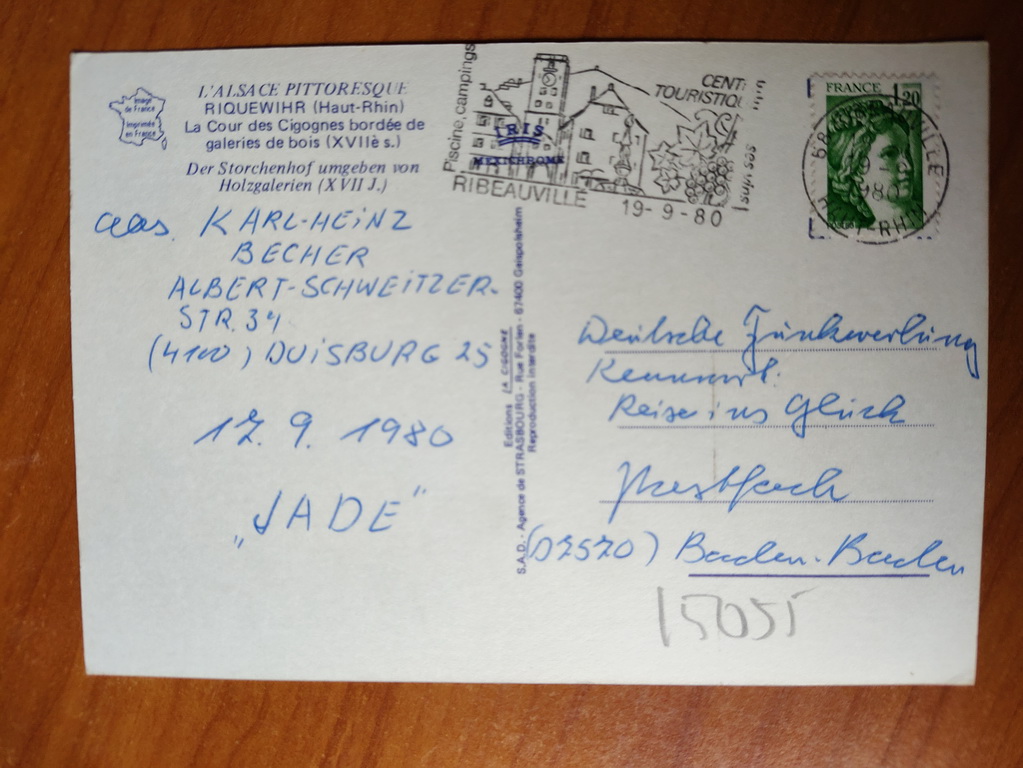 Image
de France
Imprimée
en France
L'ALSACE PITTORESQUE
RIQUEWIHR (Haut-Rhin)
La Cour des Cigognes bordée de
galeries de bois (XVIIè s.)
Der Storchenhof umgeben von
Holzgalerien (XVII J.)
Abs. KARL-HEINZ
BECHER
ALBERT-SCHWEITZER-
STR. 34
(4100) DUISBURG 25
17. 9. 1980
„JADE"
Editions LA CIGOGNE
S.A.D. - Agence de STRASBOURG - Rue Forlen - 67400 Geispolsheim
Reproduction interdite
Piscine, campings
CENT
TOURISTIQU
ses vins
IRIS
MEXICHROME
RIBEAUVILLE
19-9-80
FRANCE 1,20
68 VILLE
H RHIN
Deutsche Funkwerbung
Kennwort:
Reise ins Glück
Postfach
(D7570) Baden-Baden
15055